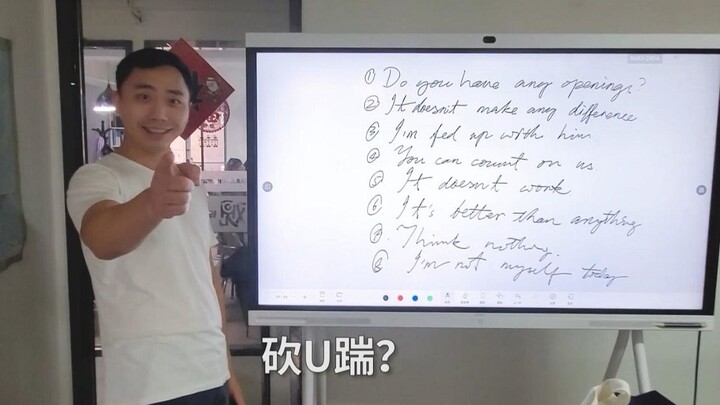 ① Do you have any openings?
② It doesn't make any difference
③ I'm fed up with him
④ You can count on us.
⑤ It doesn't work
⑥ It's better than anything
⑦. Think nothing.
⑧ I'm not myself today
砍U踹？